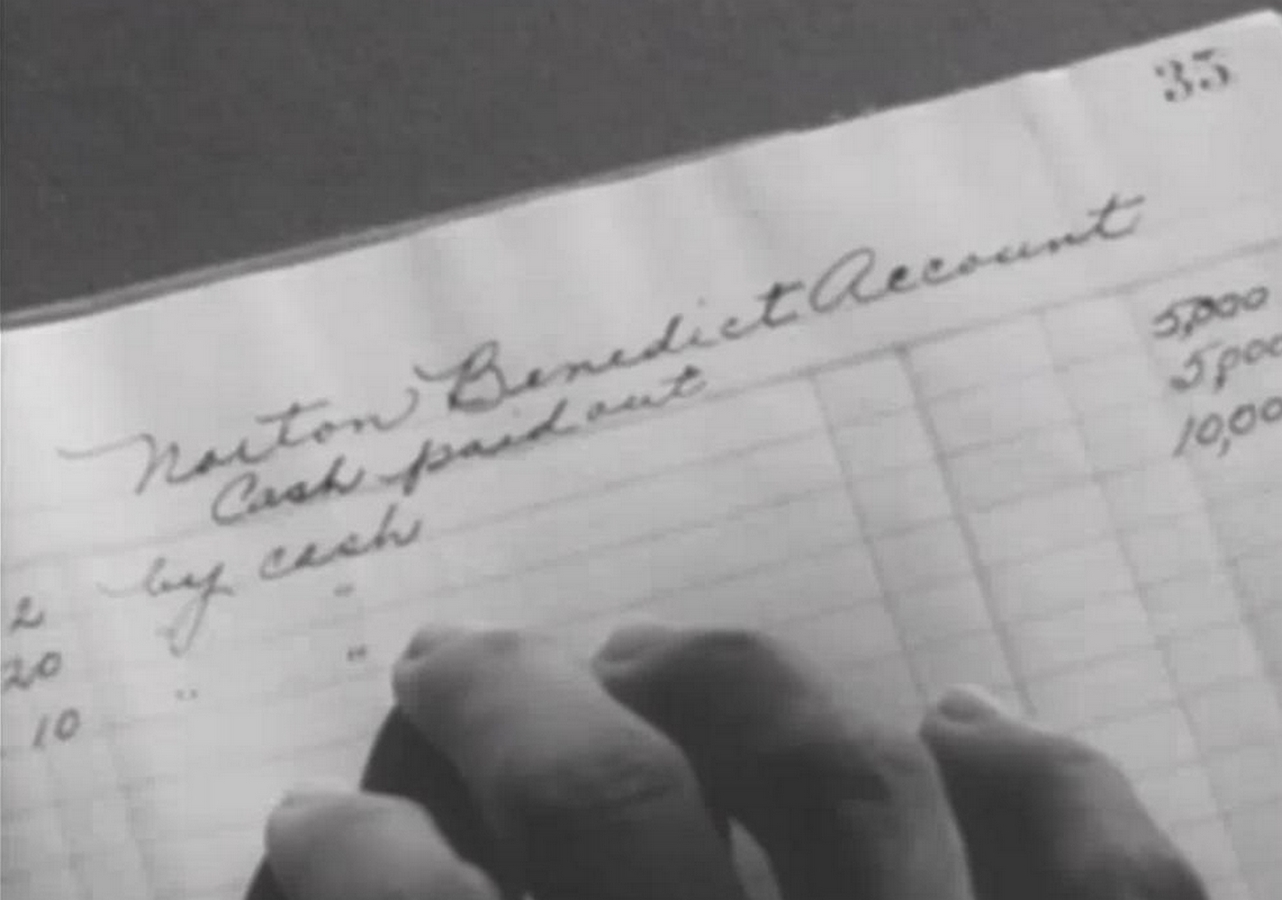 35
Norton Benedict Account
Cash paid out
2 by cash 5,000
20 " " 5,000
10 " " 10,00